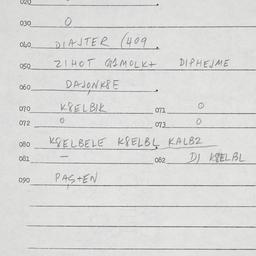 020
030 0
040 DIAJTER (409
050 21HOT G1MOLK+ DIPHEJME
060 DAJONK8E
070 K8ELBIK 071 0
072 0 073 0
080 K8ELBELE K8ELBL KALB2
081 - 082 DJ K8ELBL
090 PAS+EN